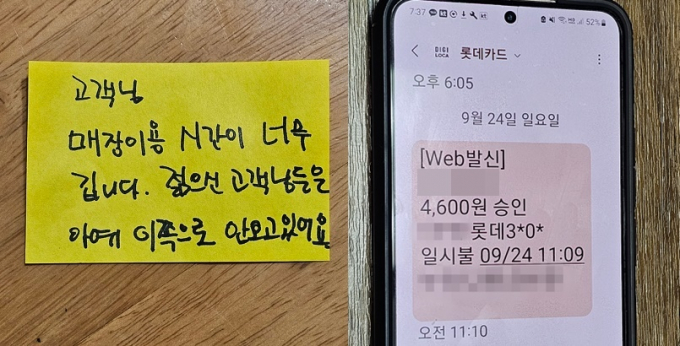 고객님
매장이용 시간이 너무
깁니다. 젊으신 고객님들은
아예 이쪽으로 안오고있어요
7:37
52%
DIGI LOCA 롯데카드
오후 6:05
9월 24일 일요일
[Web발신]
4,600원 승인
롯데3*0*
일시불 09/24 11:09
오전 11:10